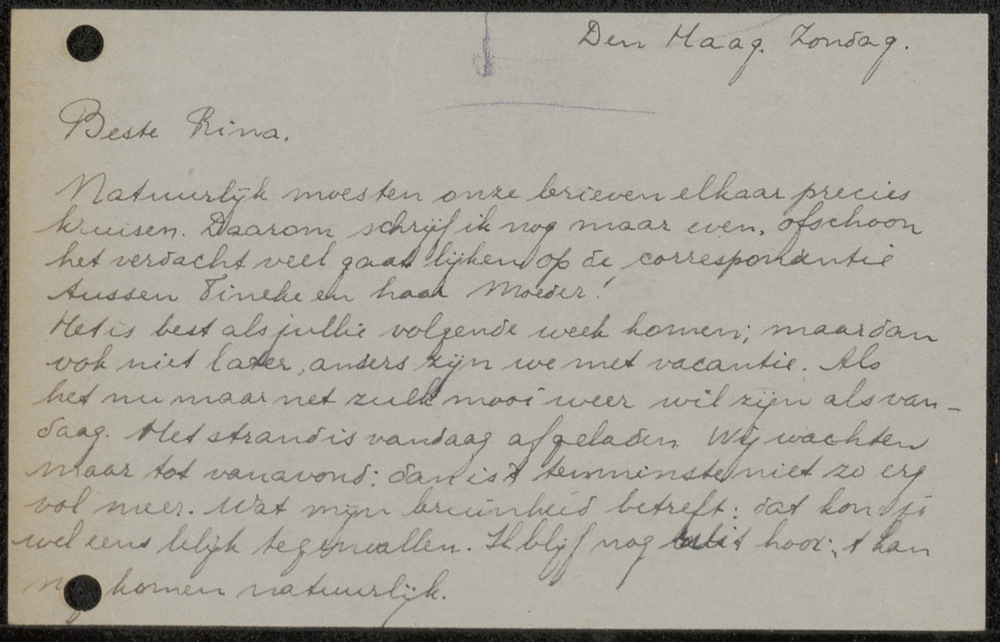 Den Haag. Zondag.
Beste Rina.
Natuurlijk moesten onze brieven elkaar precies
kruisen. Daarom schrijf ik nog maar even, ofschoon
het verdacht veel gaat lijken op de correspondentie
tussen Tineke en haar Moeder!
Het is best als jullie volgende week komen; maar dan
ook niet later, anders zijn we met vacantie. Als
het nu maar net zulk mooi weer wil zijn als van-
daag. Het strand is vandaag afgeladen. Wij wachten
maar tot vanavond: dan is 't tenminste niet zo erg
vol meer. Wat mijn bruinheid betreft: dat kon je
wel eens lelijk tegenvallen. Ik blijf nog wit hoor; 't kan
komen natuurlijk.